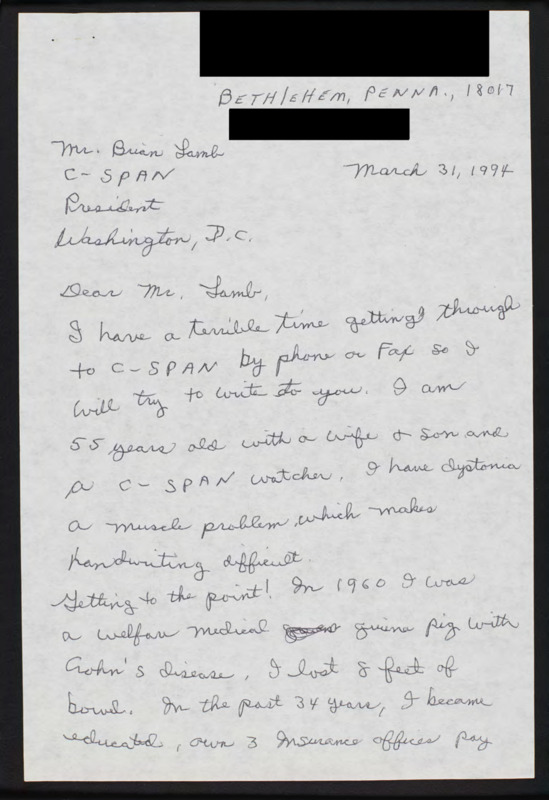 BETHlEHEM, PENNA., 18017
Mr. Brian Lamb
C-SPAN
March 31, 1994
President
Washington, D.C.
Dear Mr. Lamb,
I have a terrible time getting through
to C-SPAN by phone or Fax so I
will try to write to you. I am
55 years old with a wife & son and
a C-SPAN watcher. I have dystonia
a muscle problem, which makes
handwriting difficult.
Getting to the point! In 1960 I was
a welfare medical guina pig with
Crohn's disease, I lost 8 feet of
bowel. In the past 34 years, I became
educated, own 3 Insurance offices pay